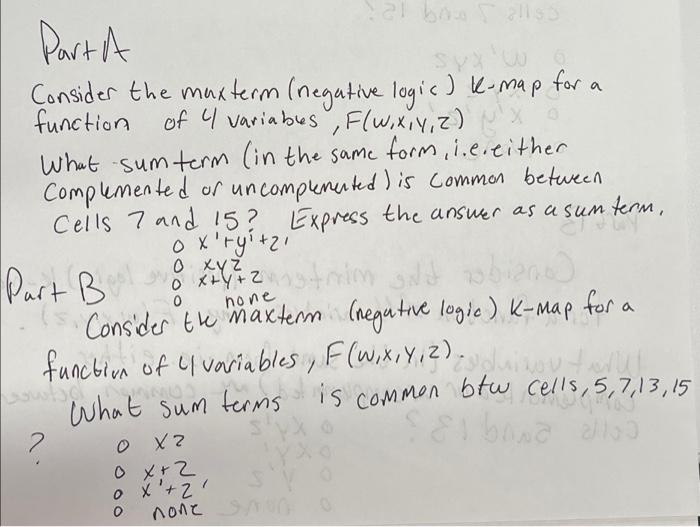 Part A
Consider the maxterm (negative logic) K-map for a
function of 4 variabus, F(w,x,y,z)
What sum term (in the same form, i.e. either
Complemented or uncomplemented) is common between
Cells 7 and 15? Express the answer as a sum term.
o x'+y'+z'
o xyz
o x+y+z
o none
Part B
Consider the maxterm (negative logic) K-map for a
function of 4 variables, F(w,x,y,z).
What sum terms is common btw cells, 5, 7, 13, 15
?
o xz
o x+z
o x'+z'
o none